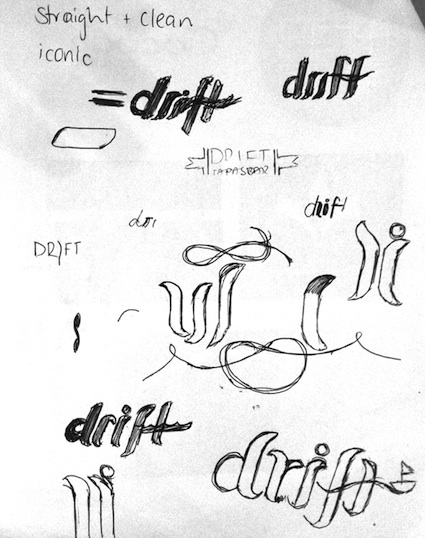 Straight + clean
iconic
= drift
drift
DRIFT
TAPASBAR
drift
dri
DRIFT
drift
drift